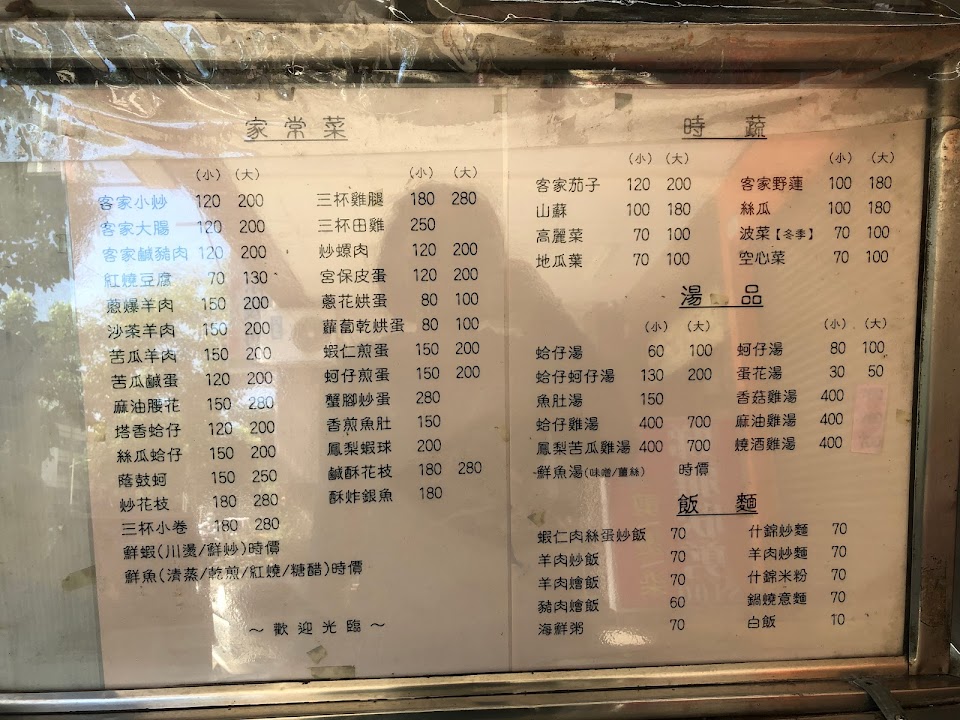 家常菜
(小) (大)
客家小炒 120 200
客家大腸 120 200
客家鹹豬肉 120 200
紅燒豆腐 70 130
蔥爆羊肉 150 200
沙茶羊肉 150 200
苦瓜羊肉 150 200
苦瓜鹹蛋 120 200
麻油腰花 150 280
塔香蛤仔 120 200
絲瓜蛤仔 150 200
蔭鼓蚵 150 250
炒花枝 180 280
三杯小卷 180 280
鮮蝦(川燙/鮮炒)時價
鮮魚(清蒸/乾煎/紅燒/糖醋)時價
(小) (大)
三杯雞腿 180 280
三杯田雞 250
炒螺肉 120 200
宮保皮蛋 120 200
蔥花烘蛋 80 100
蘿蔔乾烘蛋 80 100
蝦仁煎蛋 150 200
蚵仔煎蛋 150 200
蟹腳炒蛋 280
香煎魚肚 150
鳳梨蝦球 200
鹹酥花枝 180 280
酥炸銀魚 180
～歡迎光臨～
時蔬
(小) (大)
客家茄子 120 200
山蘇 100 180
高麗菜 70 100
地瓜葉 70 100
(小) (大)
客家野蓮 100 180
絲瓜 100 180
波菜【冬季】 70 100
空心菜 70 100
湯品
(小) (大)
蛤仔湯 60 100
蛤仔蚵仔湯 130 200
魚肚湯 150
蛤仔雞湯 400 700
鳳梨苦瓜雞湯 400 700
鮮魚湯(味噌/薑絲) 時價
(小) (大)
蚵仔湯 80 100
蛋花湯 30 50
香菇雞湯 400
麻油雞湯 400
燒酒雞湯 400
飯麵
蝦仁肉絲蛋炒飯 70
羊肉炒飯 70
羊肉燴飯 70
豬肉燴飯 60
海鮮粥 70
什錦炒麵 70
羊肉炒麵 70
什錦米粉 70
鍋燒意麵 70
白飯 10